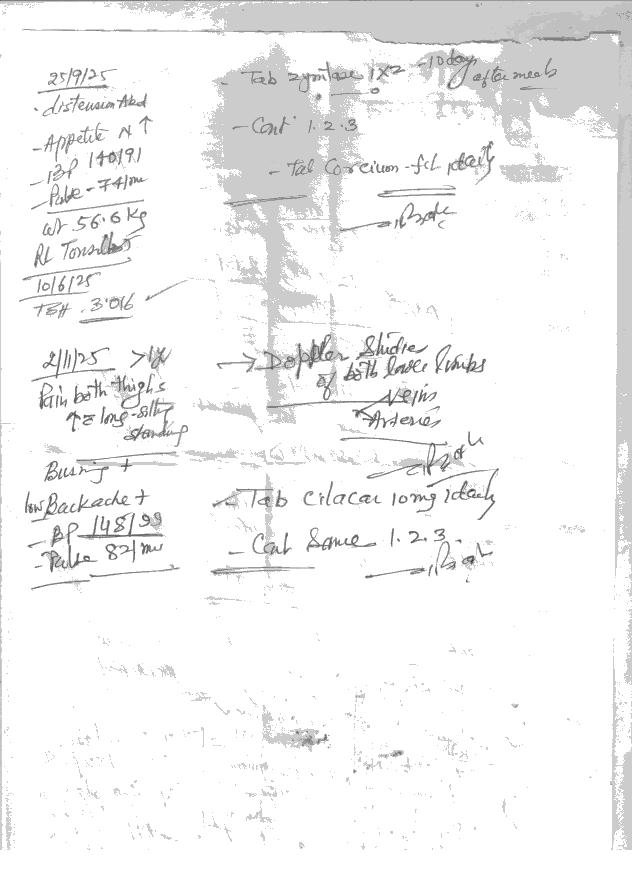 25/9/25
- Tab zymtase 1x2 - 10 days after meals
. distension Abd
- Appetite N ↑
- Cont 1.2.3
- BP 140/91
- Tab Corcium - fcl 1 daily
- Pulse - 74/mu
wt. 56.6 Kg
Rt Tonsil
10/6/25
TSH . 3.016
2/11/25 >1y
→ Doppler Studies
of both lower limbs
Pain both thighs
Veins
↑ c long-sitting
Arteries
standing
Burning +
low Backache +
- Tab Cilacar 10mg 1 daily
- BP 148/99
- Cont Same 1.2.3.
- Pulse 82/mu